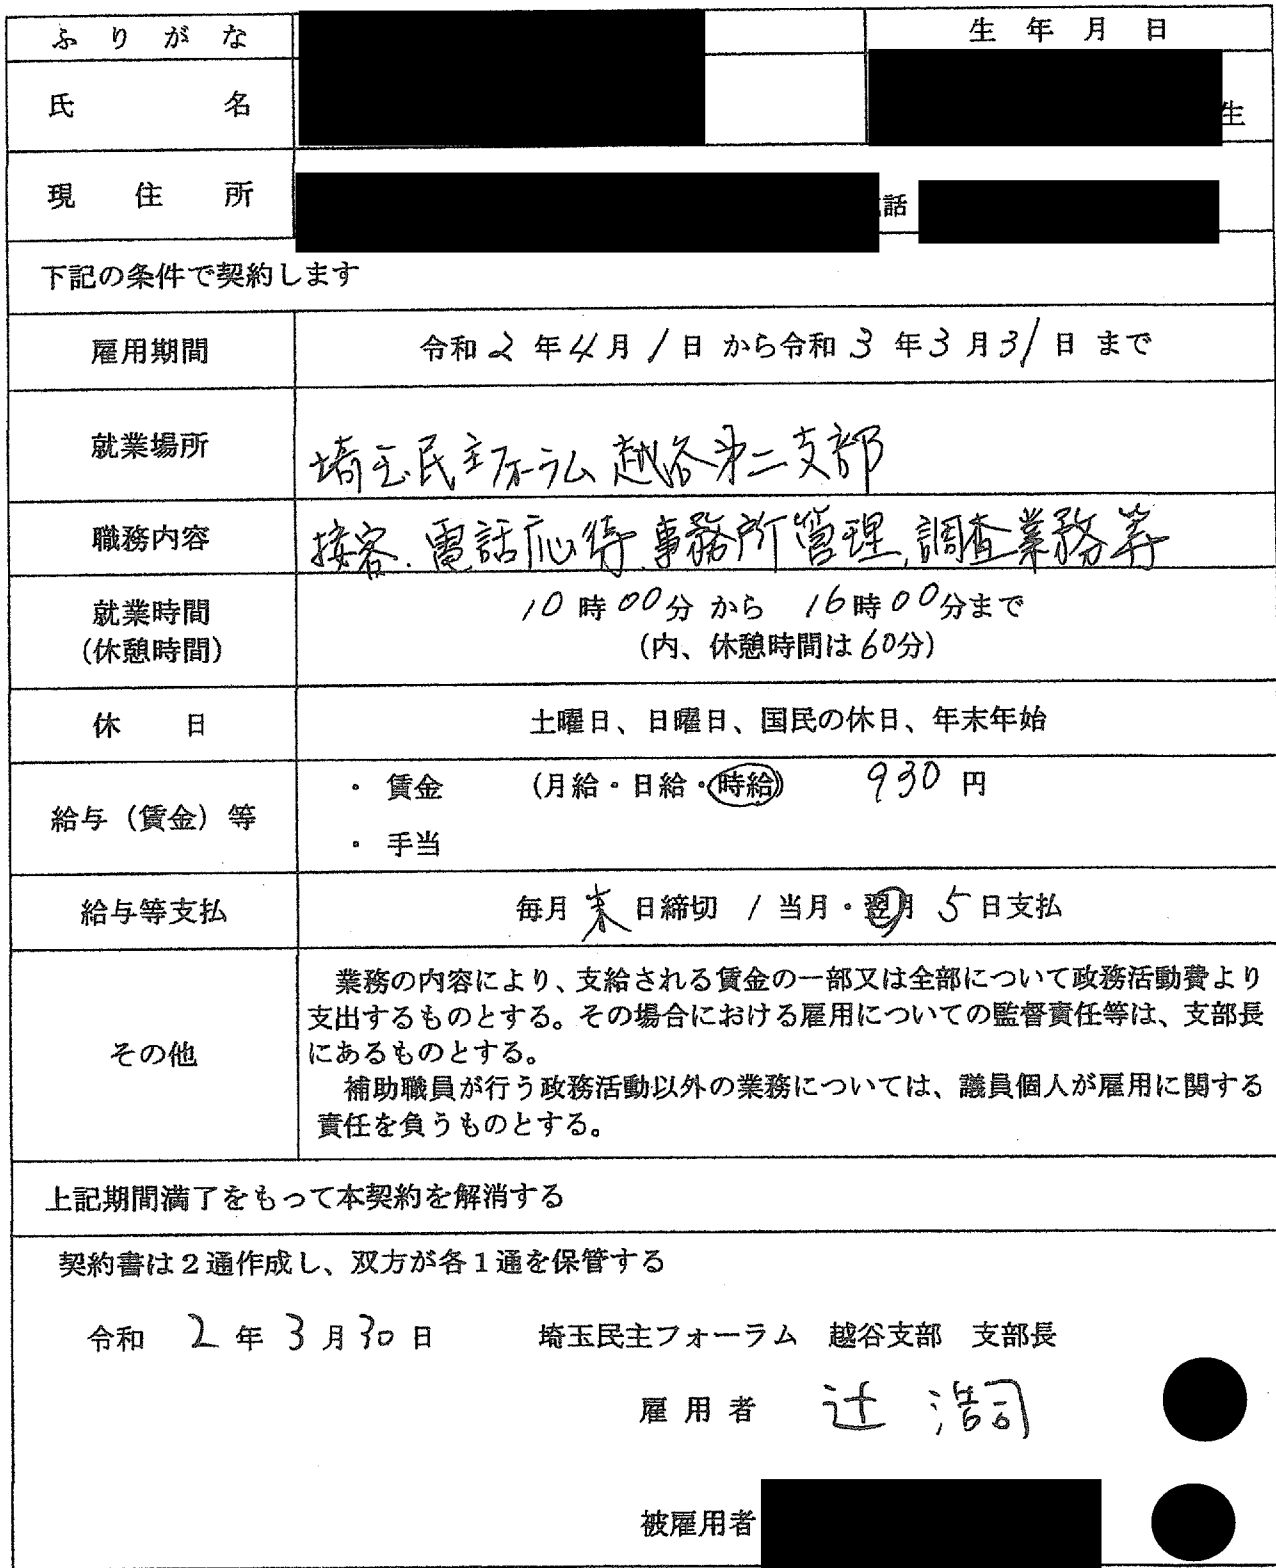 ふりがな
生年月日
氏名
生
現住所
話
下記の条件で契約します
雇用期間
令和2年4月1日から令和3年3月31日まで
就業場所
埼玉民主フォーラム越谷第二支部
職務内容
接客、電話応待、事務所管理、調査業務等
就業時間
(休憩時間)
10時00分から 16時00分まで
(内、休憩時間は60分)
休日
土曜日、日曜日、国民の休日、年末年始
給与(賃金)等
・賃金 (月給・日給・時給) 930円
・手当
給与等支払
毎月末日締切 / 当月・翌月 5日支払
その他
業務の内容により、支給される賃金の一部又は全部について政務活動費より
支出するものとする。その場合における雇用についての監督責任等は、支部長
にあるものとする。
補助職員が行う政務活動以外の業務については、議員個人が雇用に関する
責任を負うものとする。
上記期間満了をもって本契約を解消する
契約書は2通作成し、双方が各1通を保管する
令和 2年3月30日 埼玉民主フォーラム 越谷支部 支部長
雇用者 辻 浩司
被雇用者